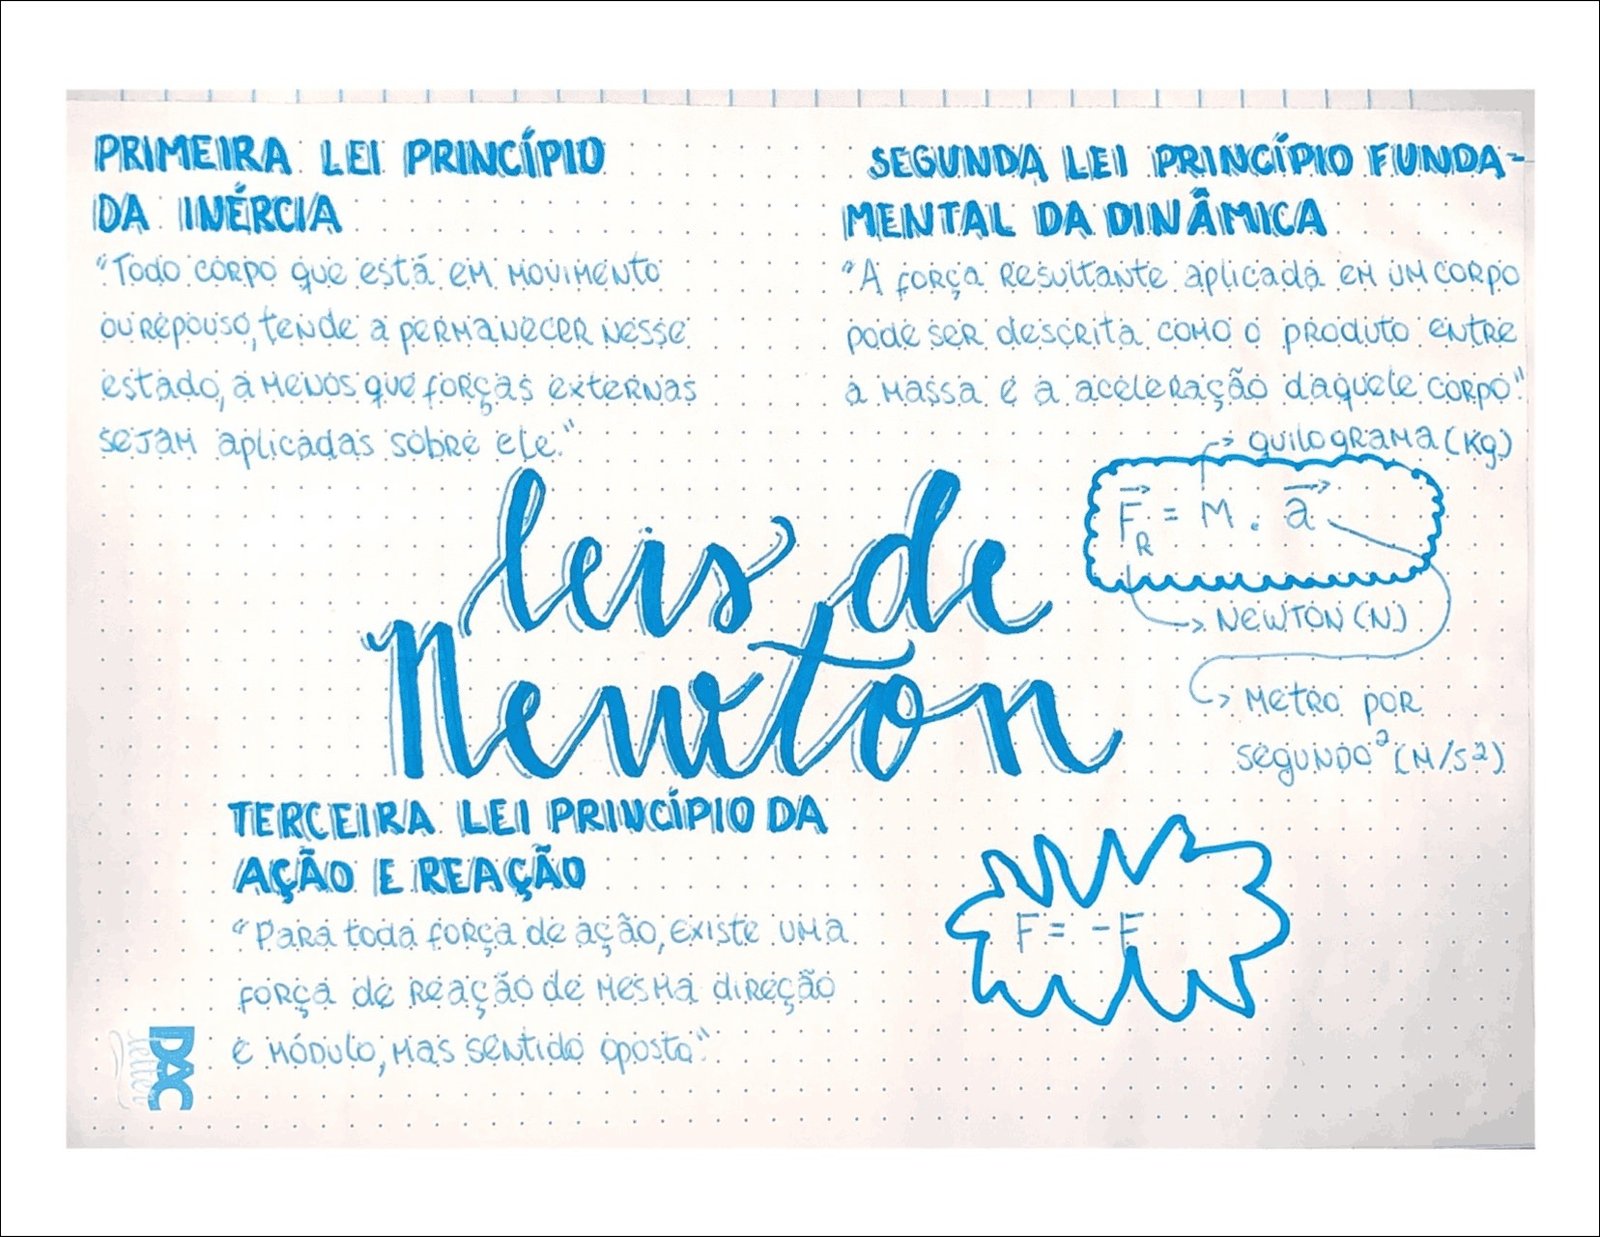 PRIMEIRA LEI PRINCÍPIO
DA INÉRCIA
"Todo corpo que está em movimento
ou repouso, tende a permanecer nesse
estado, a menos que forças externas
sejam aplicadas sobre ele."
SEGUNDA LEI PRINCÍPIO FUNDA-
MENTAL DA DINÂMICA
"A força resultante aplicada em um corpo
pode ser descrita como o produto entre
a massa e a aceleração daquele corpo."
quilograma (Kg)
F⃗R = M . a⃗
NEWTON (N)
metro por
segundo² (M/s²)
leis de
Newton
TERCEIRA LEI PRINCÍPIO DA
AÇÃO E REAÇÃO
"Para toda força de ação, existe uma
força de reação de mesma direção
e módulo, mas sentido oposto".
F = -F
DAC